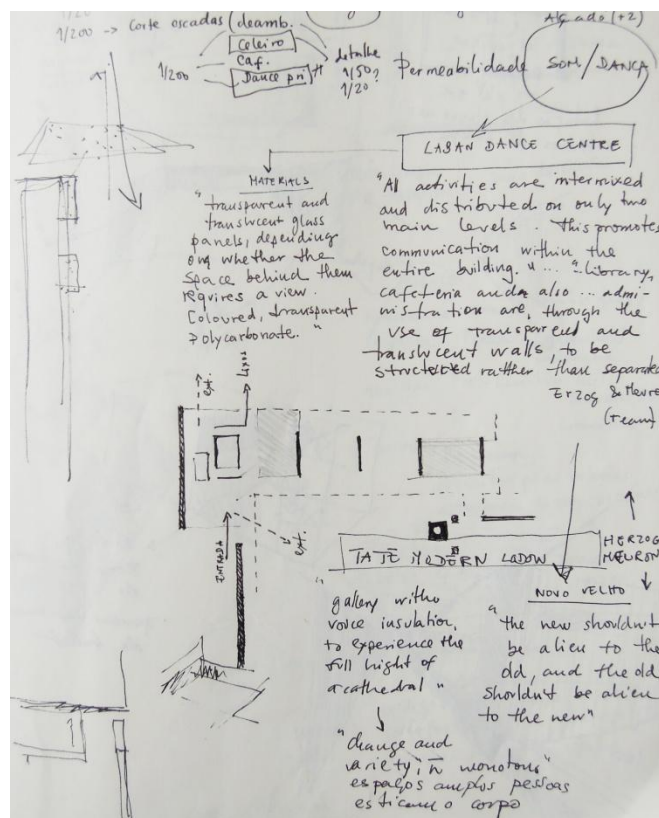 1/200 → Corte escadas (deamb.
Alçado (+2)
Celeiro
1/200
Caf.
Dance pri
detalhe
1/50?
1/20
Permeabilidade
SOM/DANÇA
LABAN DANCE CENTRE
MATERIALS
"transparent and
translucent glass
panels, depending
on whether the
space behind them
requires a view.
Coloured, transparent
polycarbonate."
"All activities are intermixed
and distributed on only two
main levels. This promotes
communication within the
entire building." ... "library,
cafeteria and also ... admi-
nistration are, through the
use of transparent and
translucent walls, to be
structured ratther than separated
Erzog & Meuron
(team)
ext.
LIXOS
ENTRADA
ext.
TATE MODERN LODOW
HERZOG
MEURON
NOVO VELHO
"gallery witho
voice insulation,
to experience the
full hight of
a cathedral"
"the new shouldn't
be alien to the
old, and the old
shouldn't be alien
to the new"
"change and
variety, ñ monotous"
espaços amplos pessoas
esticam o corpo